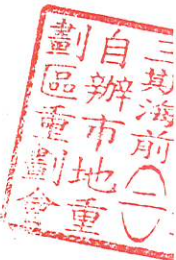 三期海前(二)
自辦市地重
劃區重劃會